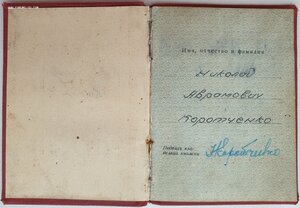 Имя, отчество и фамилия
Николай
Аврамович
Коротченко
Подпись вла-
дельца книжки